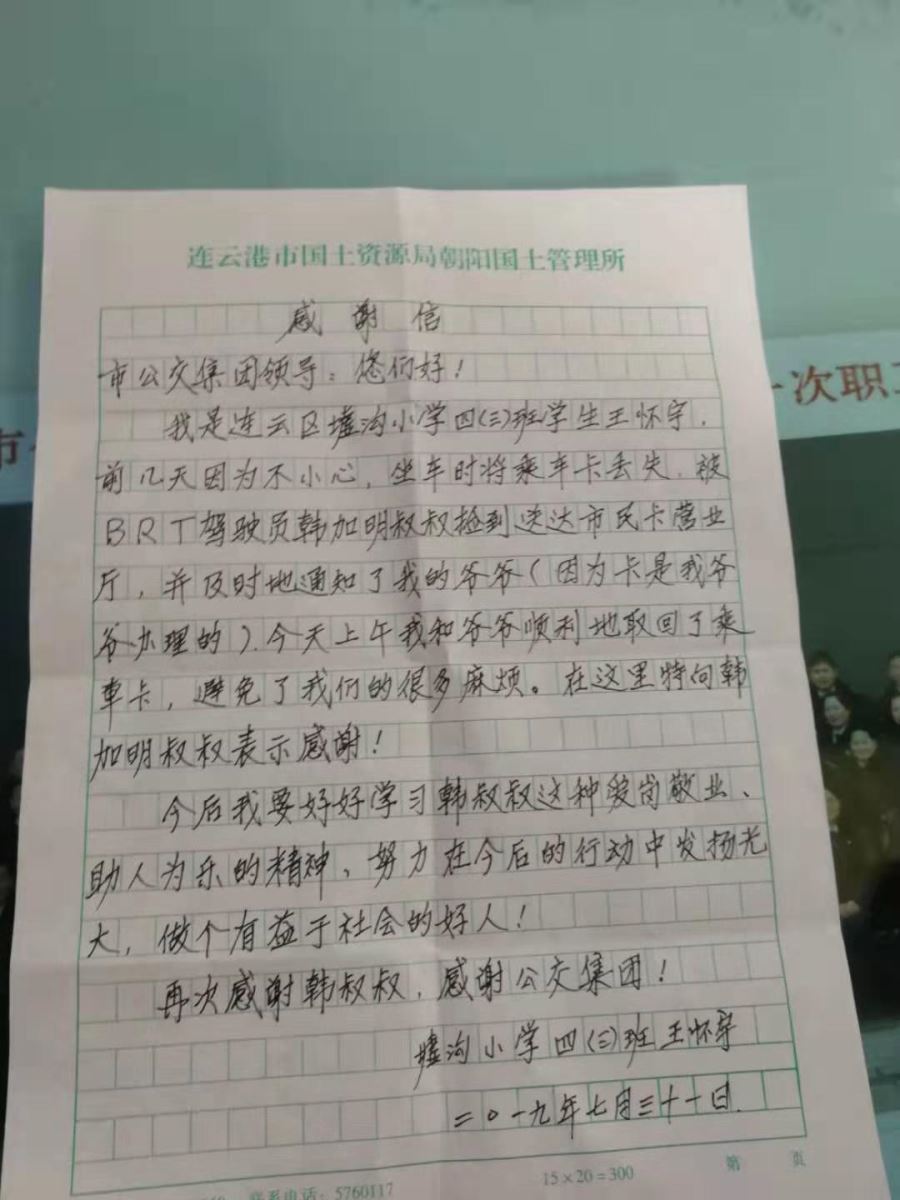 连云港市国土资源局朝阳国土管理所
感谢信
市公交集团领导：您们好！
我是连云区墟沟小学四(三)班学生王怀宇.
前几天因为不小心，坐车时将乘车卡丢失.被
BRT驾驶员韩加明叔叔捡到送达市民卡营业
厅，并及时地通知了我的爷爷(因为卡是我爷
爷办理的).今天上午我和爷爷顺利地取回了乘
车卡，避免了我们的很多麻烦。在这里特向韩
加明叔叔表示感谢！
今后我要好好学习韩叔叔这种爱岗敬业、
助人为乐的精神、努力在今后的行动中发扬光
大，做个有益于社会的好人！
再次感谢韩叔叔，感谢公交集团！
墟沟小学四(三)班王怀宇
二〇一九年七月三十一日.
联系电话：5760117
15×20=300
第 页
市
一次职工